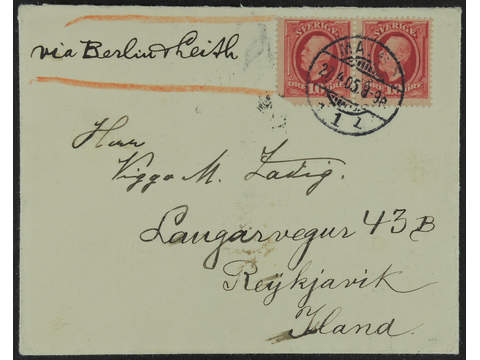 via Berlin & Leith
SVERIGE SVERIGE
10
Herr
Viggo M. Zadig.
Laugarvegur 43 B
Reykjavik
Island.